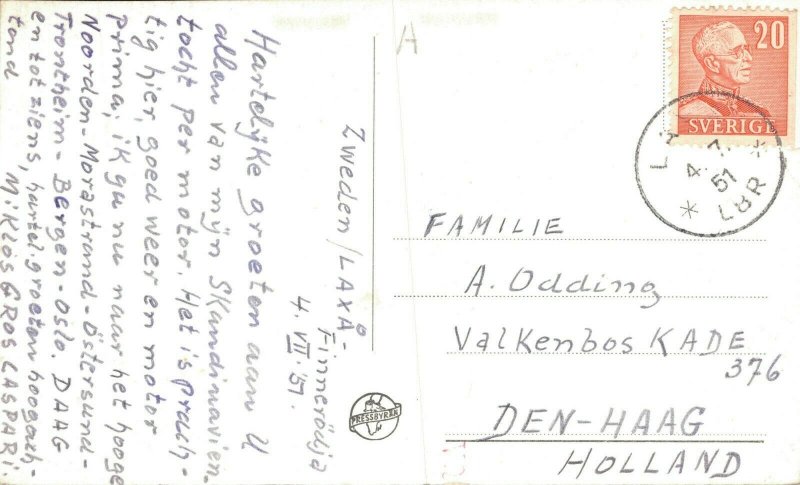 Zweden / LAXÅ-
Finnerödja
4. VII. '51.
Hartelijke groeten aan U
allen van mijn Skandinavien-
tocht per motor. Het is prach-
tig hier, goed weer en motor
prima; ik ga nu naar het hooge
Noorden - Morastrand - Östersund -
Trontheim - Bergen - Oslo. DAAG
en tot ziens, hartel. groeten hoogach-
tend
MiKlós GROS CASPARI.
A
20
SVERIGE
4. 7. 51
LBR
FAMILIE
A. Odding
Valkenbos KADE
376
DEN-HAAG
HOLLAND
PRESSBYRÅN